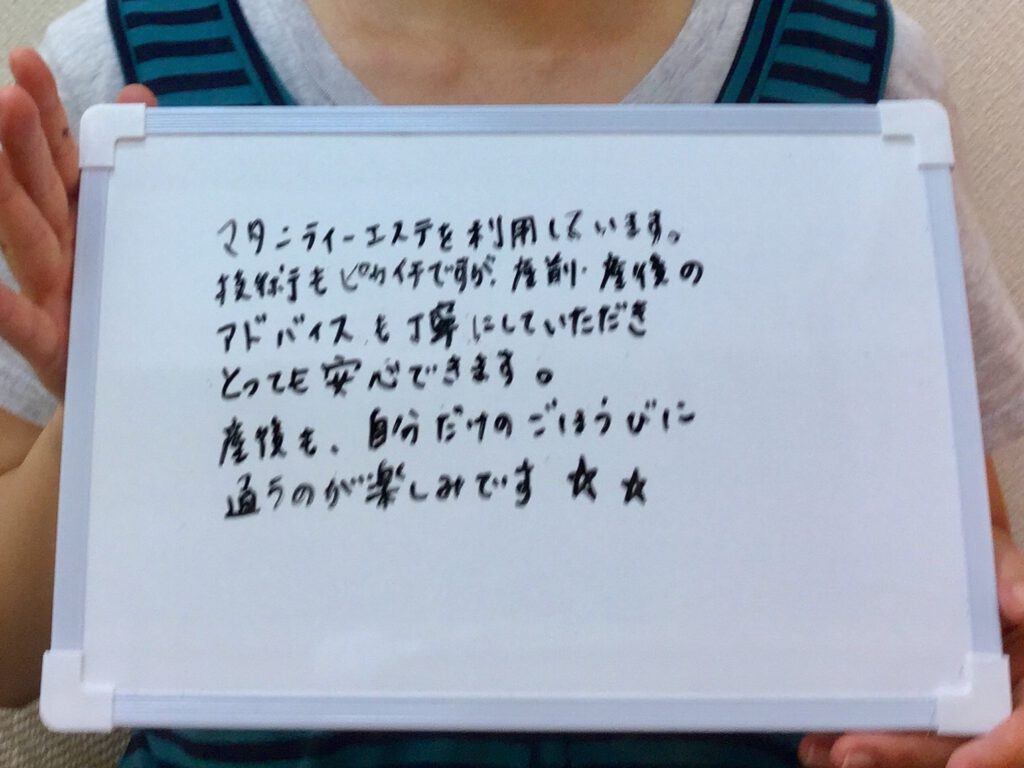 マタニティーエステを利用しています。
技術もピカイチですが、産前・産後の
アドバイスも丁寧にしていただき
とっても安心できます。
産後も、自分だけのごほうびに
通うのが楽しみです ☆ ☆